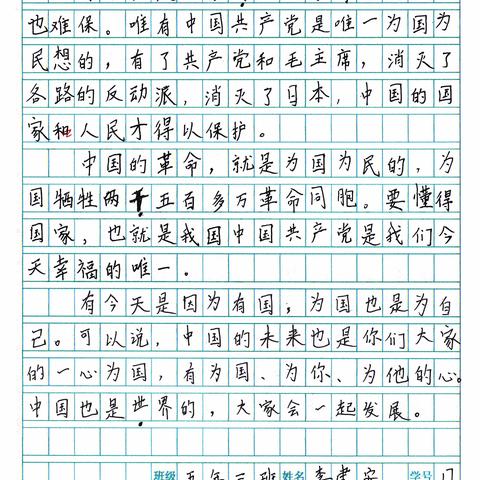 也难保。唯有中国共产党是唯一为国为
民想的，有了共产党和毛主席，消灭了
各路的反动派，消灭了日本，中国的国
家和人民才得以保护。
中国的革命，就是为国为民的，为
国牺牲两千五百多万革命同胞。要懂得
国家，也就是我国中国共产党是我们今
天幸福的唯一。
有今天是因为有国，为国也是为自
己。可以说，中国的未来也是你们大家
的一心为国，有为国、为你、为他的心。
中国也是世界的，大家会一起发展。
班级 五年三班 姓名 学号